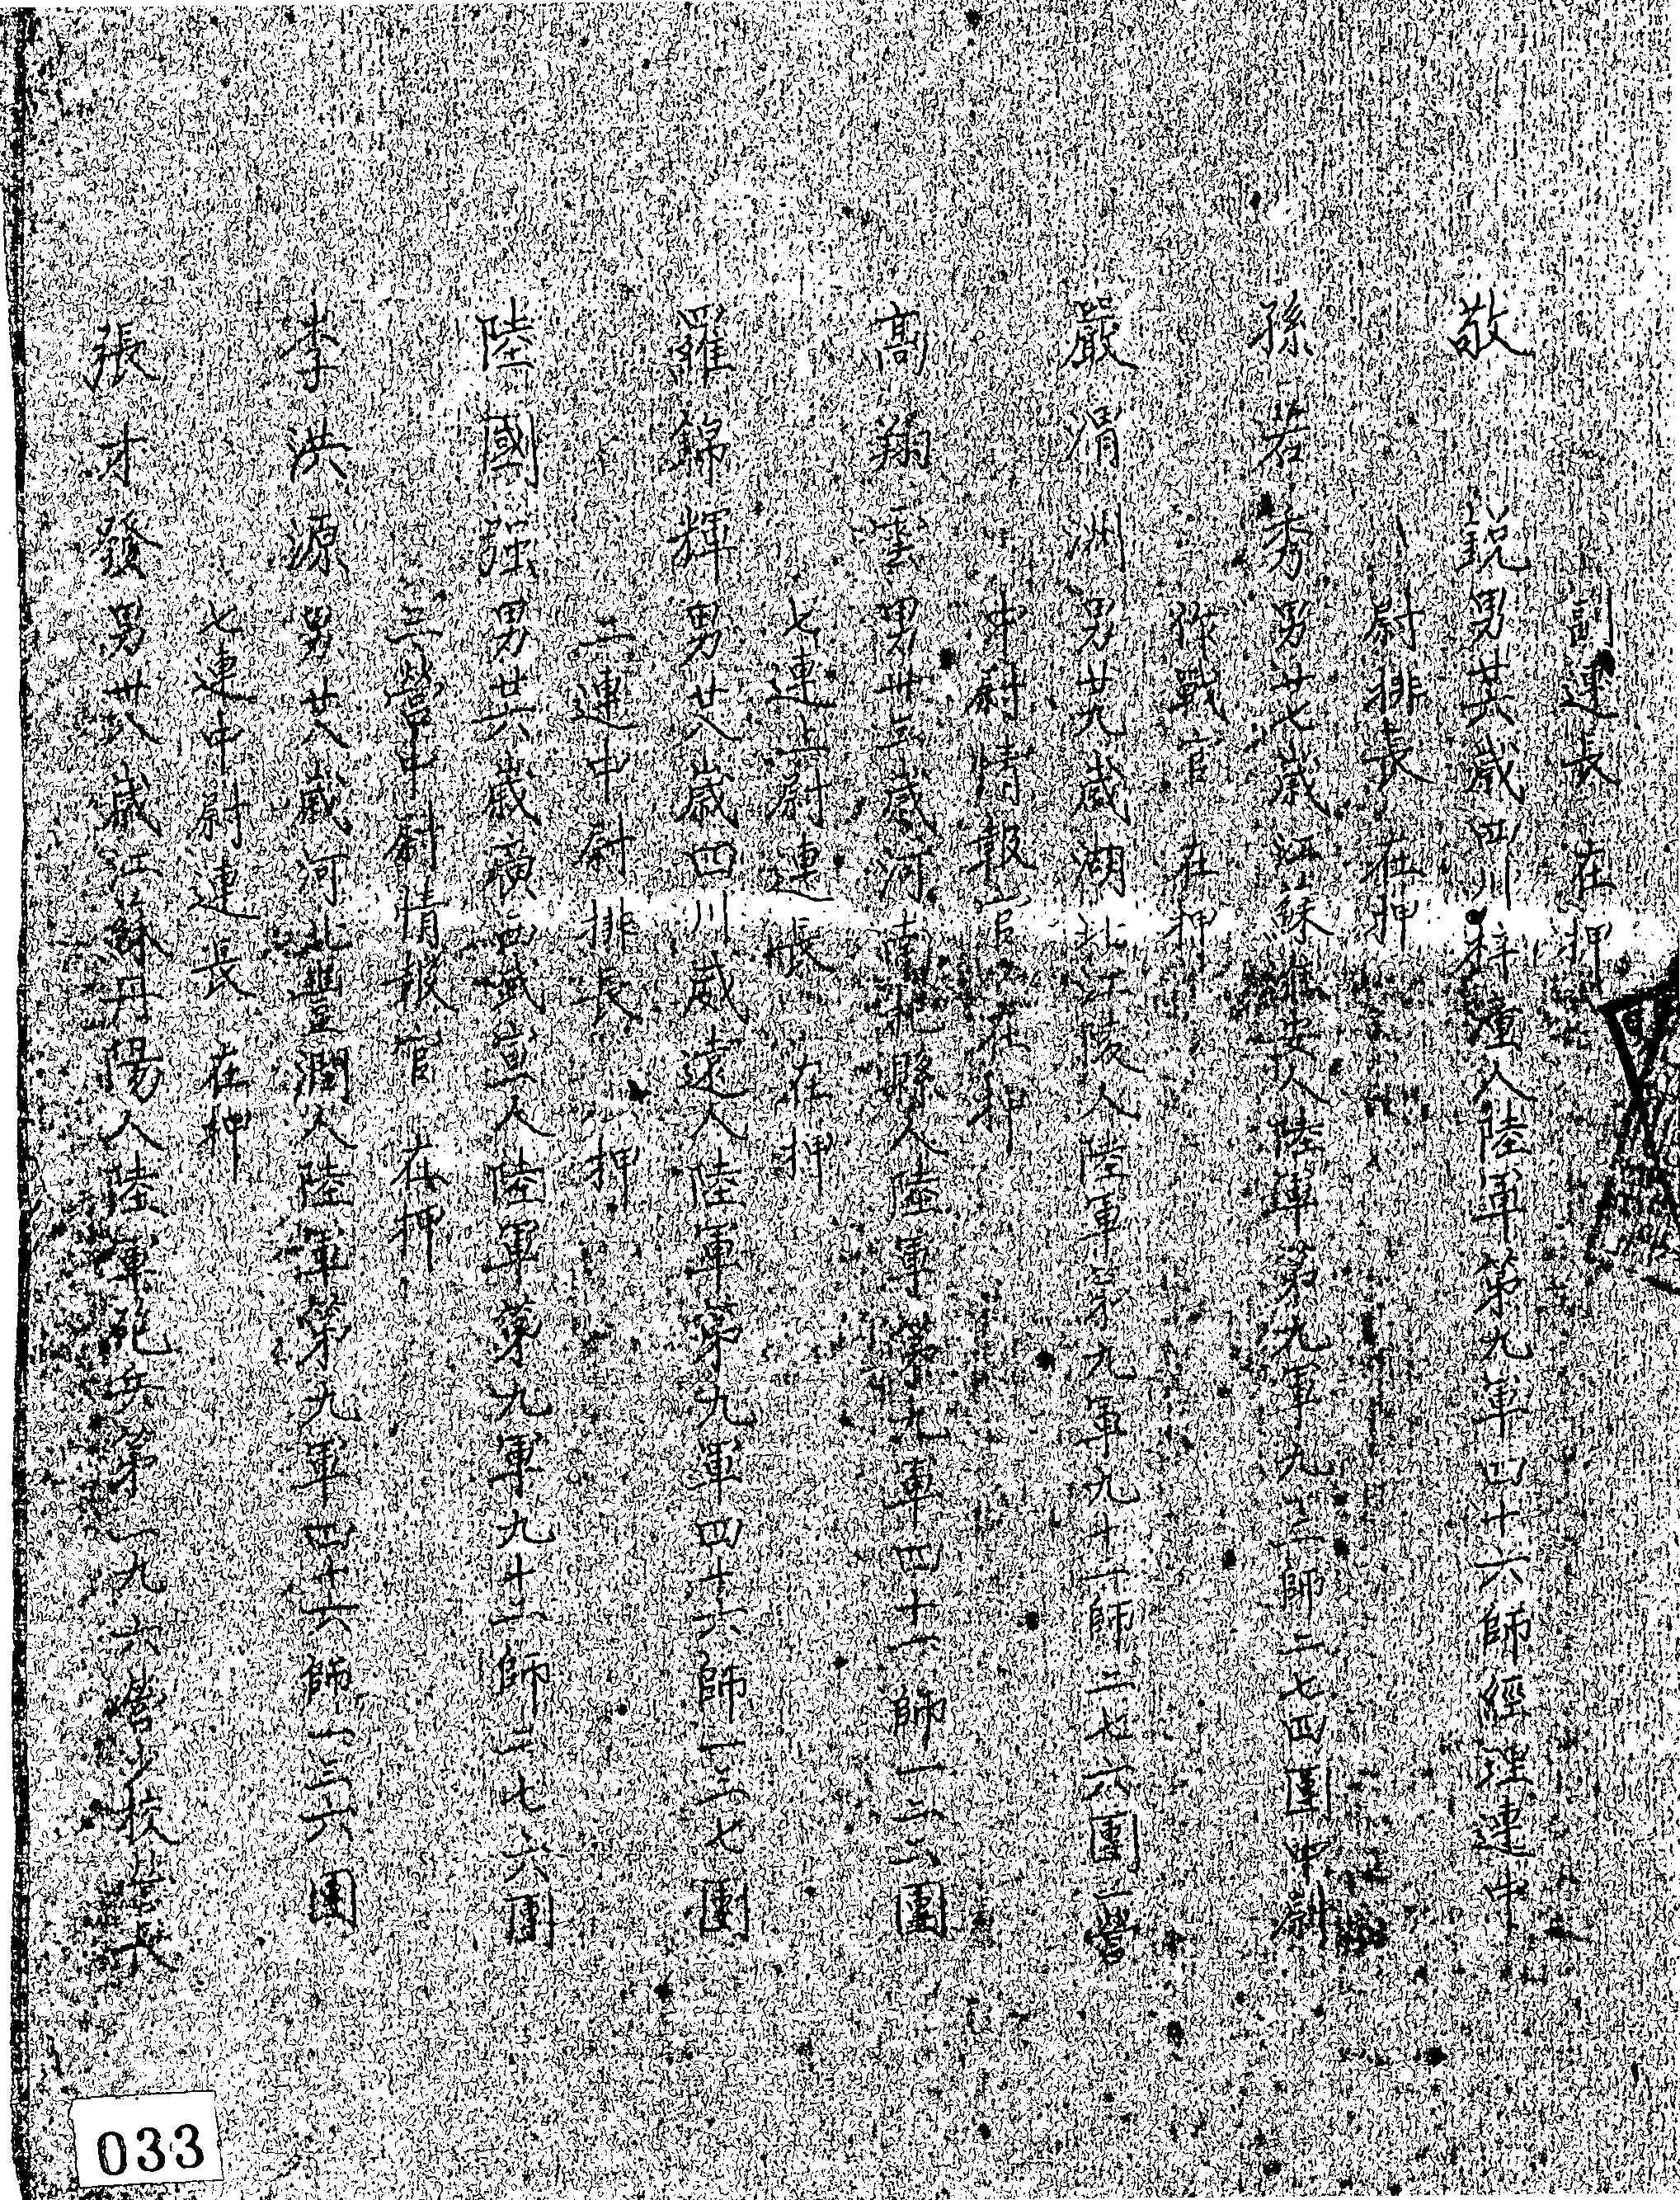 副連長 在押
敬 銳 男 廿六歲 四川梓潼人 陸軍第九軍四十六師經理連中
尉排長 在押
孫若秀 男 廿七歲 江蘇淮安人 陸軍第九軍九二師二七四團中尉
作戰官 在押
嚴渭洲 男 廿九歲 湖北江陵人 陸軍第九軍九十二師二七六團二營
中尉情報官 在押
高翔雲 男 卅三歲 河南杞縣人 陸軍第九軍四十六師一三六團
七連上尉連長 在押
羅錦輝 男 廿八歲 四川威遠人 陸軍第九軍四十六師一三七團
二連中尉排長 押
陸國強 男 廿六歲 廣西武宣人 陸軍第九軍九十二師二七六團
三營中尉情報官 在押
李洪源 男 廿八歲 河北豐潤人 陸軍第九軍四十六師一三六團
七連中尉連長 在押
張才發 男 廿八歲 江蘇丹陽人 陸軍砲兵第一九六營少校營長
033